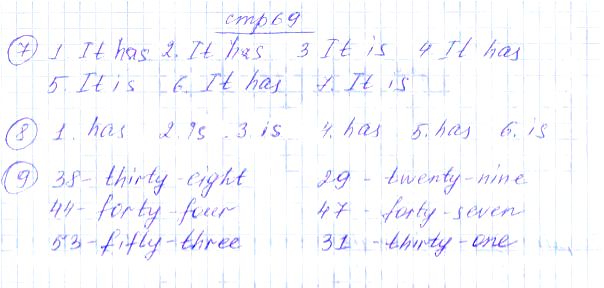 стр69
7 1. It has 2. It has 3 It is 4 It has
5. It is 6. It has 7. It is
8 1. has 2. is 3. is 4. has 5. has 6. is
9 38 - thirty-eight 29 - twenty-nine
44 - forty-four 47 - forty-seven
53 - fifty-three 31 - thirty-one